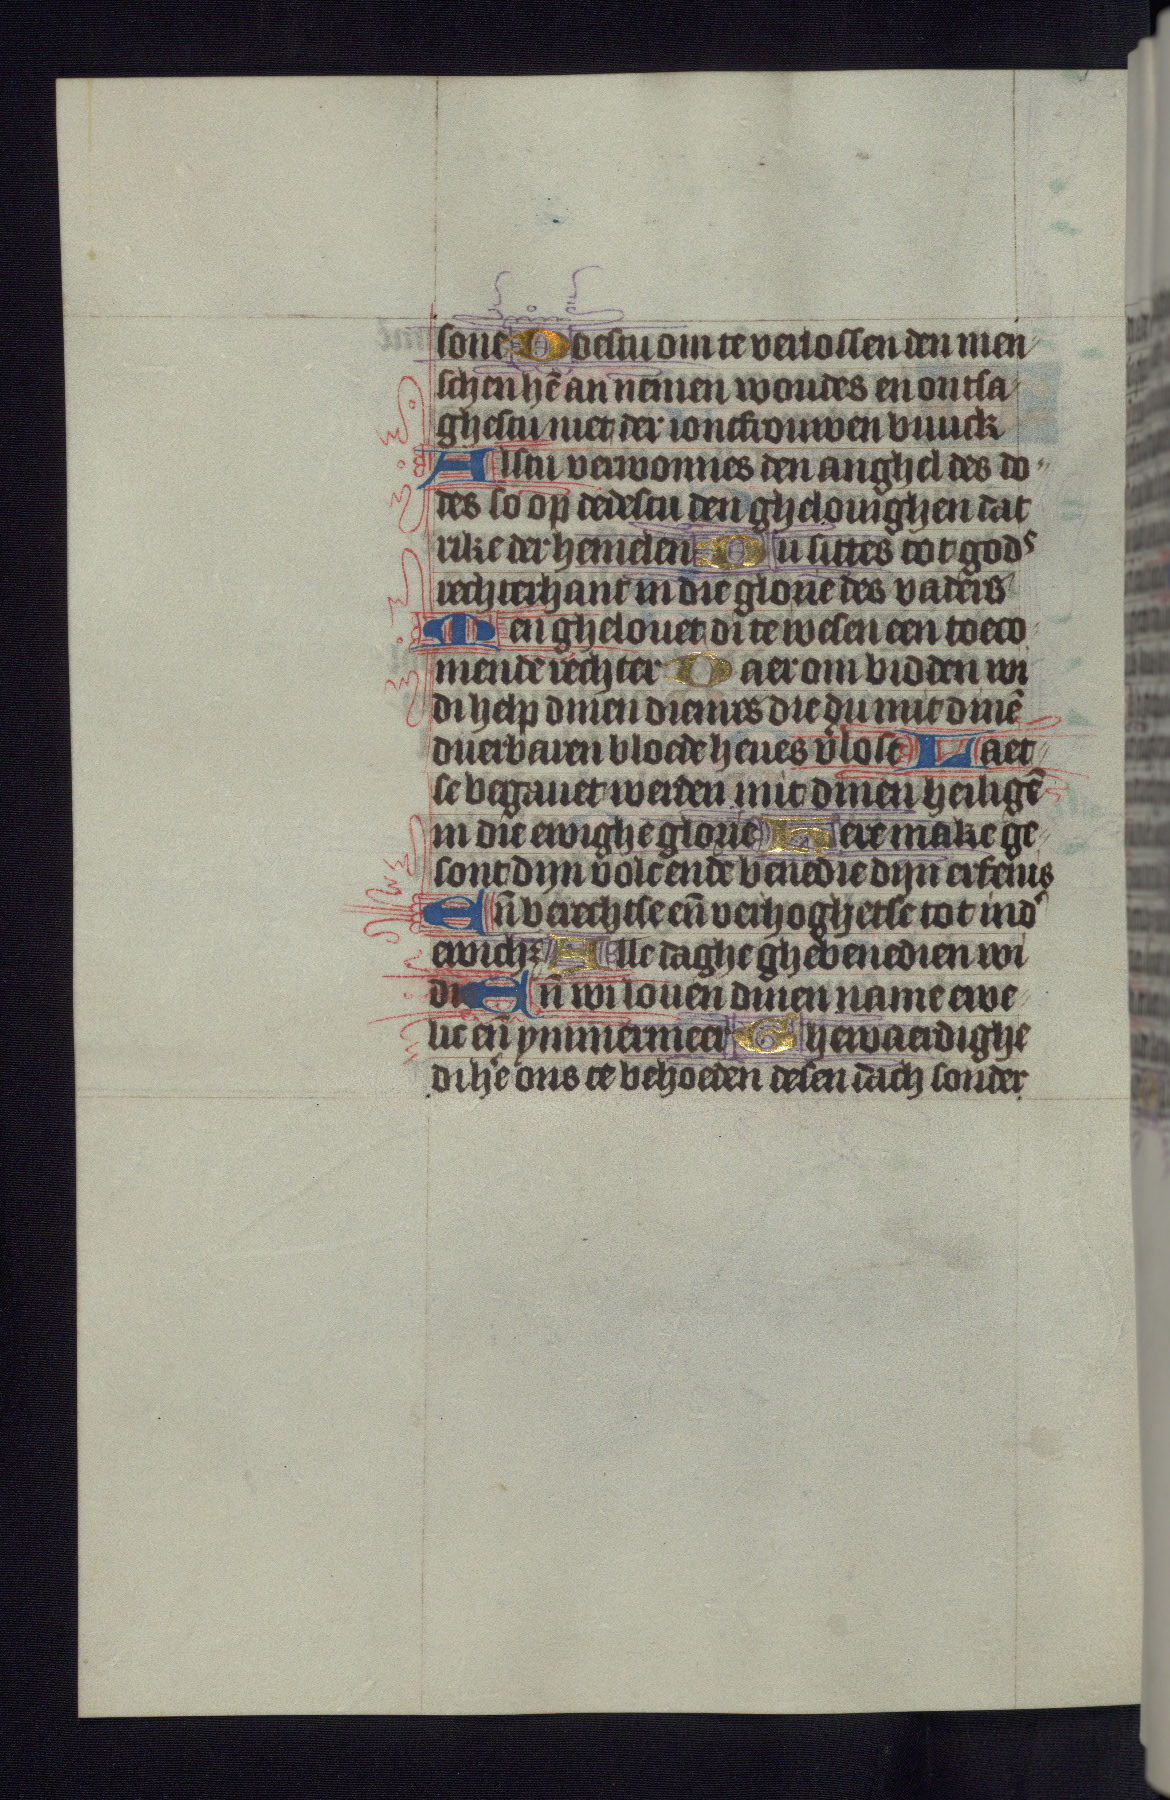 sone Doestu om te verlossen den men
schen hē an nemen woudes en ontsa
ghestu niet der ioncfrouwen buuck
Alstu verwonnes den anghel des do
des so op dedestu den ghelouighen dat
rike der hemelen Du sittes tot gods
rechterhant in die glorie des vaders
Men ghelouet di te wesen een toeco
mende rechter Daer om bidden wi
di help dinen dienres die du mit dinē
duerbaren bloede heues vlost Laet
se begauet werden mit dinen heiligē
in die ewighe glorie Here make ge
sont dijn volc ende benedie dijn erfenis
Eñ berechtse eñ verhoghetse tot ind
ewich Alle daghe ghebenedien wi
di Eñ wi louen dinen name ewe
lic eñ ymmermeer Ghewaerdighe
di hē ons te behoeden desen dach sonder